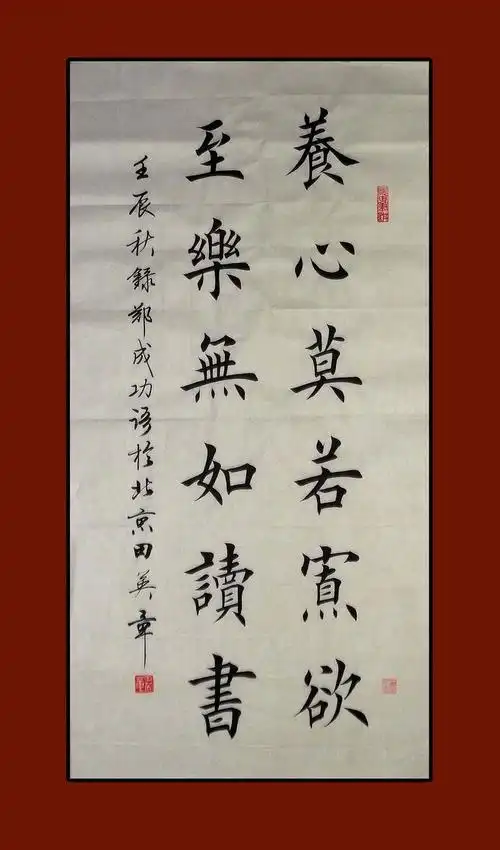 養心莫若寡欲
至樂無如讀書
壬辰秋録鄭成功语於北京田英章